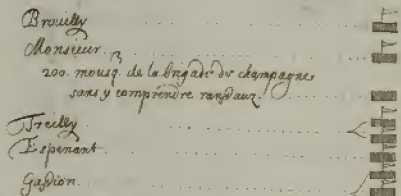 Brouilly
Monsieur.
200. mousq. de la brigade de champagne
sans y comprendre ranzaux.
Treilly
Espenant.
Gassion.